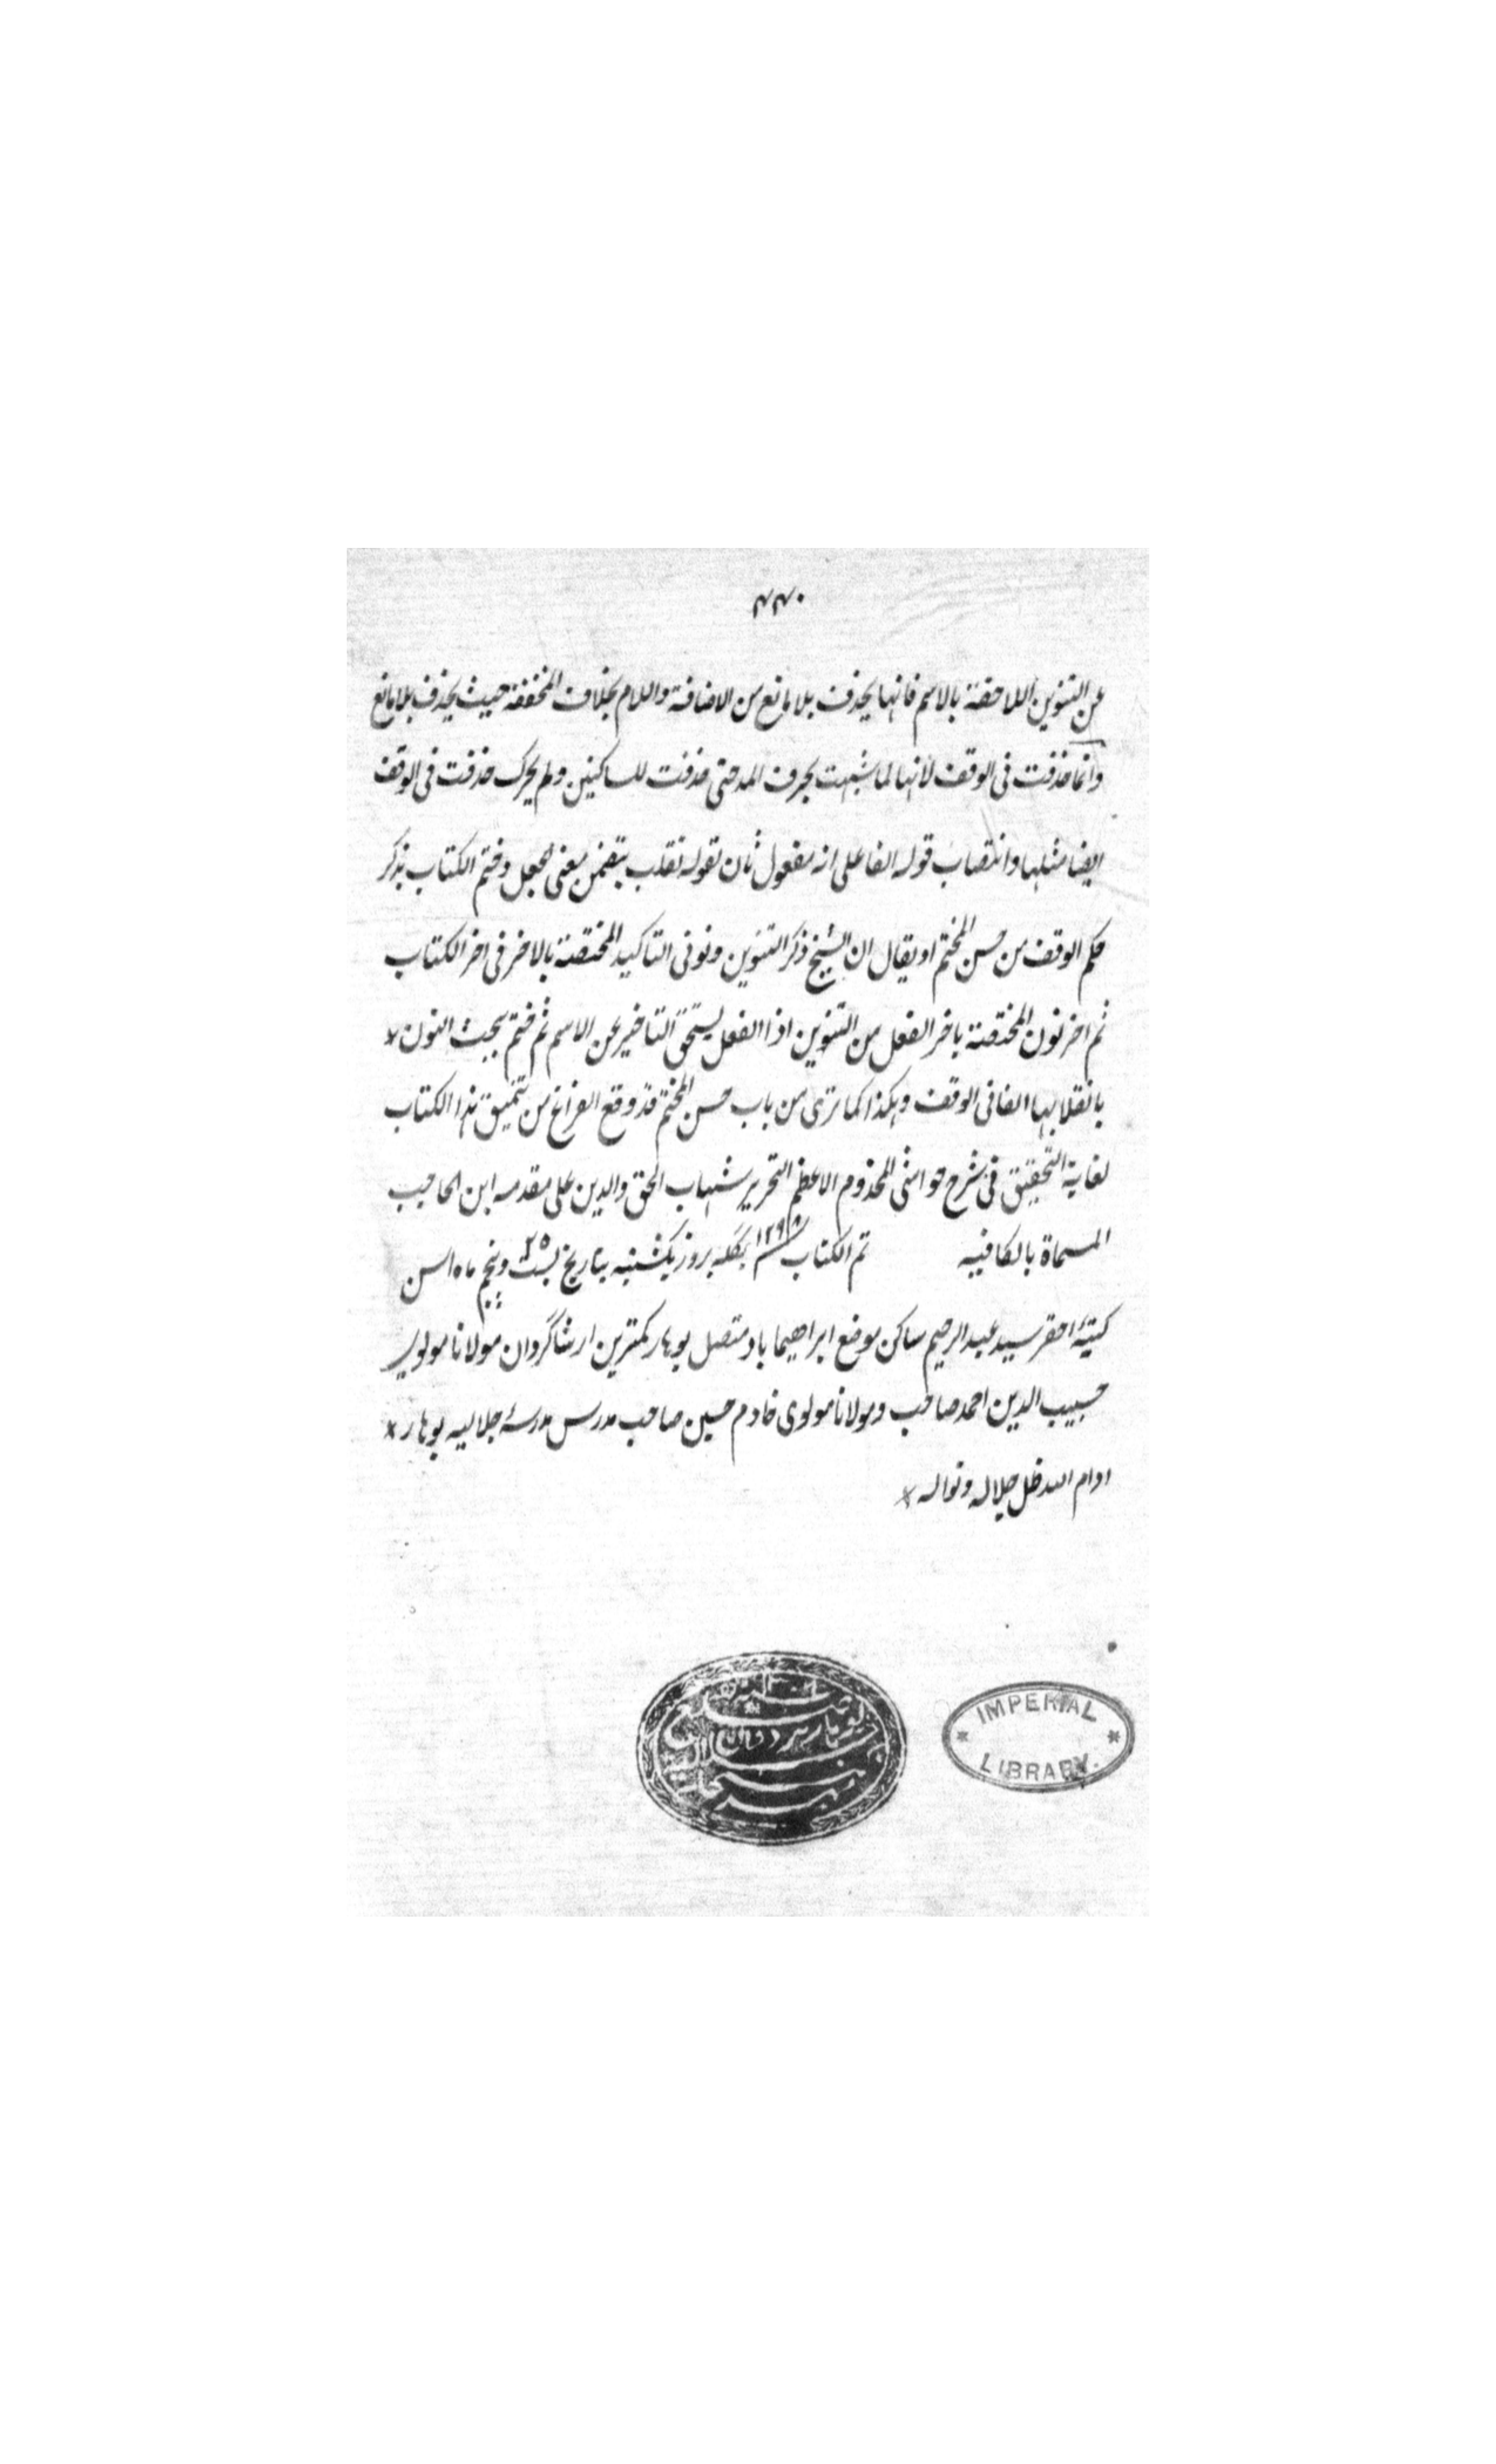 ۴۴۰
عن التنوين اللاحقة بالاسم فانها يحذف بلا مانع من الاضافة واللام بخلاف المخففة حيث يحذف بلا مانع
وانما حذفت فى الوقف لانها لما شبهت بحرف المد حتى حذفت للساكنين ولم يحرك حذفت فى الوقف
ايضا مثلها وانتصاب قوله الفا على انه مفعول ثان لقوله تقلب بتضمن معنى الجعل وختم الكتاب بذكر
حكم الوقف من حسن المختم او يقال ان الشيخ ذكر التنوين ونونى التاكيد المختصة بالاخر فى اخر الكتاب
ثم اخر نون المختصة باخر الفعل من التنوين اذا الفعل يستحق التاخير عن الاسم ثم ختم بحث النون
بانقلابها الفا فى الوقف وهكذا كما ترى من باب حسن المختم قد وقع الفراغ من تنميق هذا الكتاب
لغاية التحقيق فى شرح حواشى المخدوم الاعظم النحرير شهاب الحق والدين على مقدمه ابن الحاجب
المسماة بالكافيه تم الكتاب ۱۲۹۸ بنگله بروز يكشنبه بتاريخ ۲۵ بست وپنجم ماه اسن
كتبه احقر سيد عبد الرحيم ساكن موضع ابراهيماباد متصل بوهار كمترين از شاگردان مولانا مولوى
حبيب الدين احمد صاحب ومولانا مولوى خادم حسين صاحب مدرس مدرسۀ جلاليه بوهار
ادام الله ظل جلاله ونواله
IMPERIAL
LIBRARY.